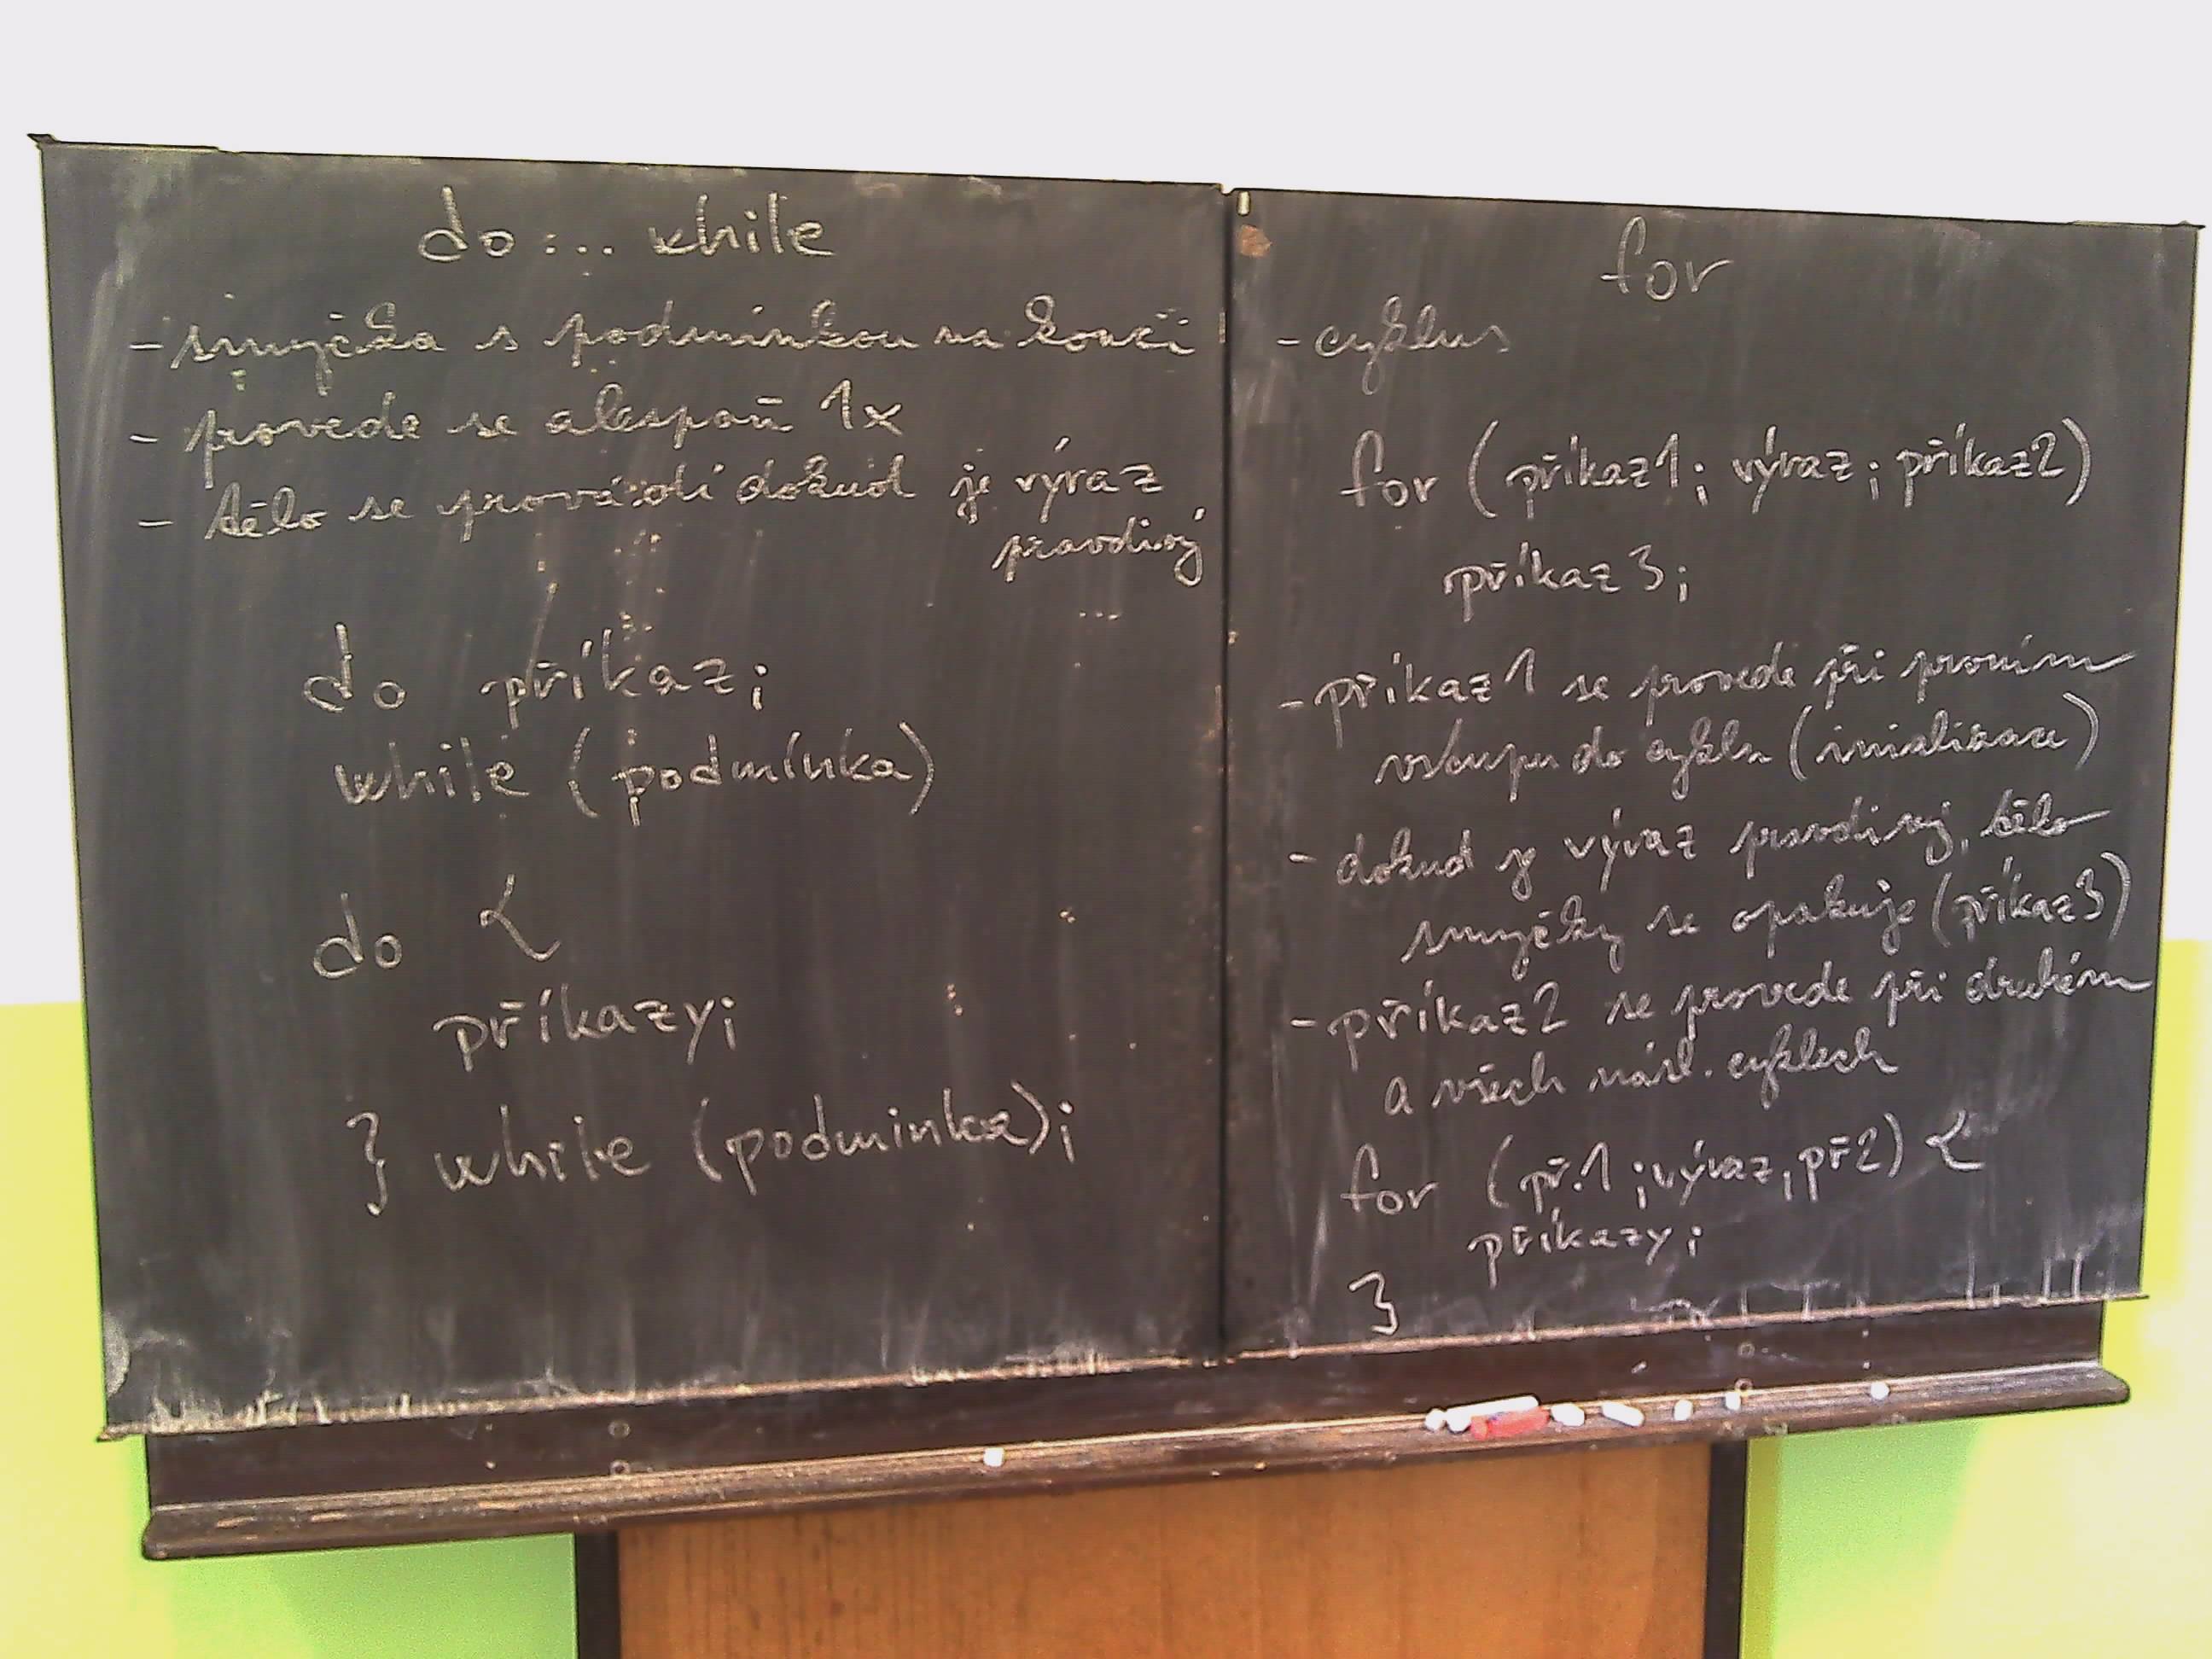 do ... while
- smyčka s podmínkou na konci
- provede se alespoň 1x
- tělo se provádí dokud je výraz
pravdivý
...
do příkaz;
while (podmínka)
do {
příkazy;
} while (podminka);
for
- cyklus
for (příkaz1; výraz; příkaz2)
příkaz 3;
- příkaz 1 se provede při prvním
vstupu do cyklu (inicializace)
- dokud je výraz pravdivý, tělo
smyčky se opakuje (příkaz3)
- příkaz2 se provede při druhém
a všech násl. cyklech
for (př.1 ; výraz; př2) {
příkazy;
}